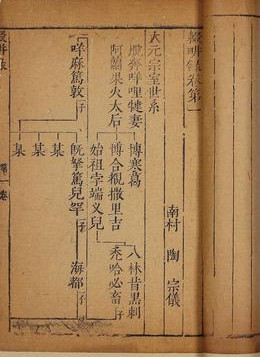 輟耕錄卷第一
南村 陶 宗儀
大元宗室世系
奔咩哩犍妻 博寒葛
阿蘭果火太后 博合覩撒里吉
始祖孛端义兒
八林昔黑剌
禿哈必畜 子
咩麻篤敦 子
既拏篤兒罕 子
海都 子
某
某
某